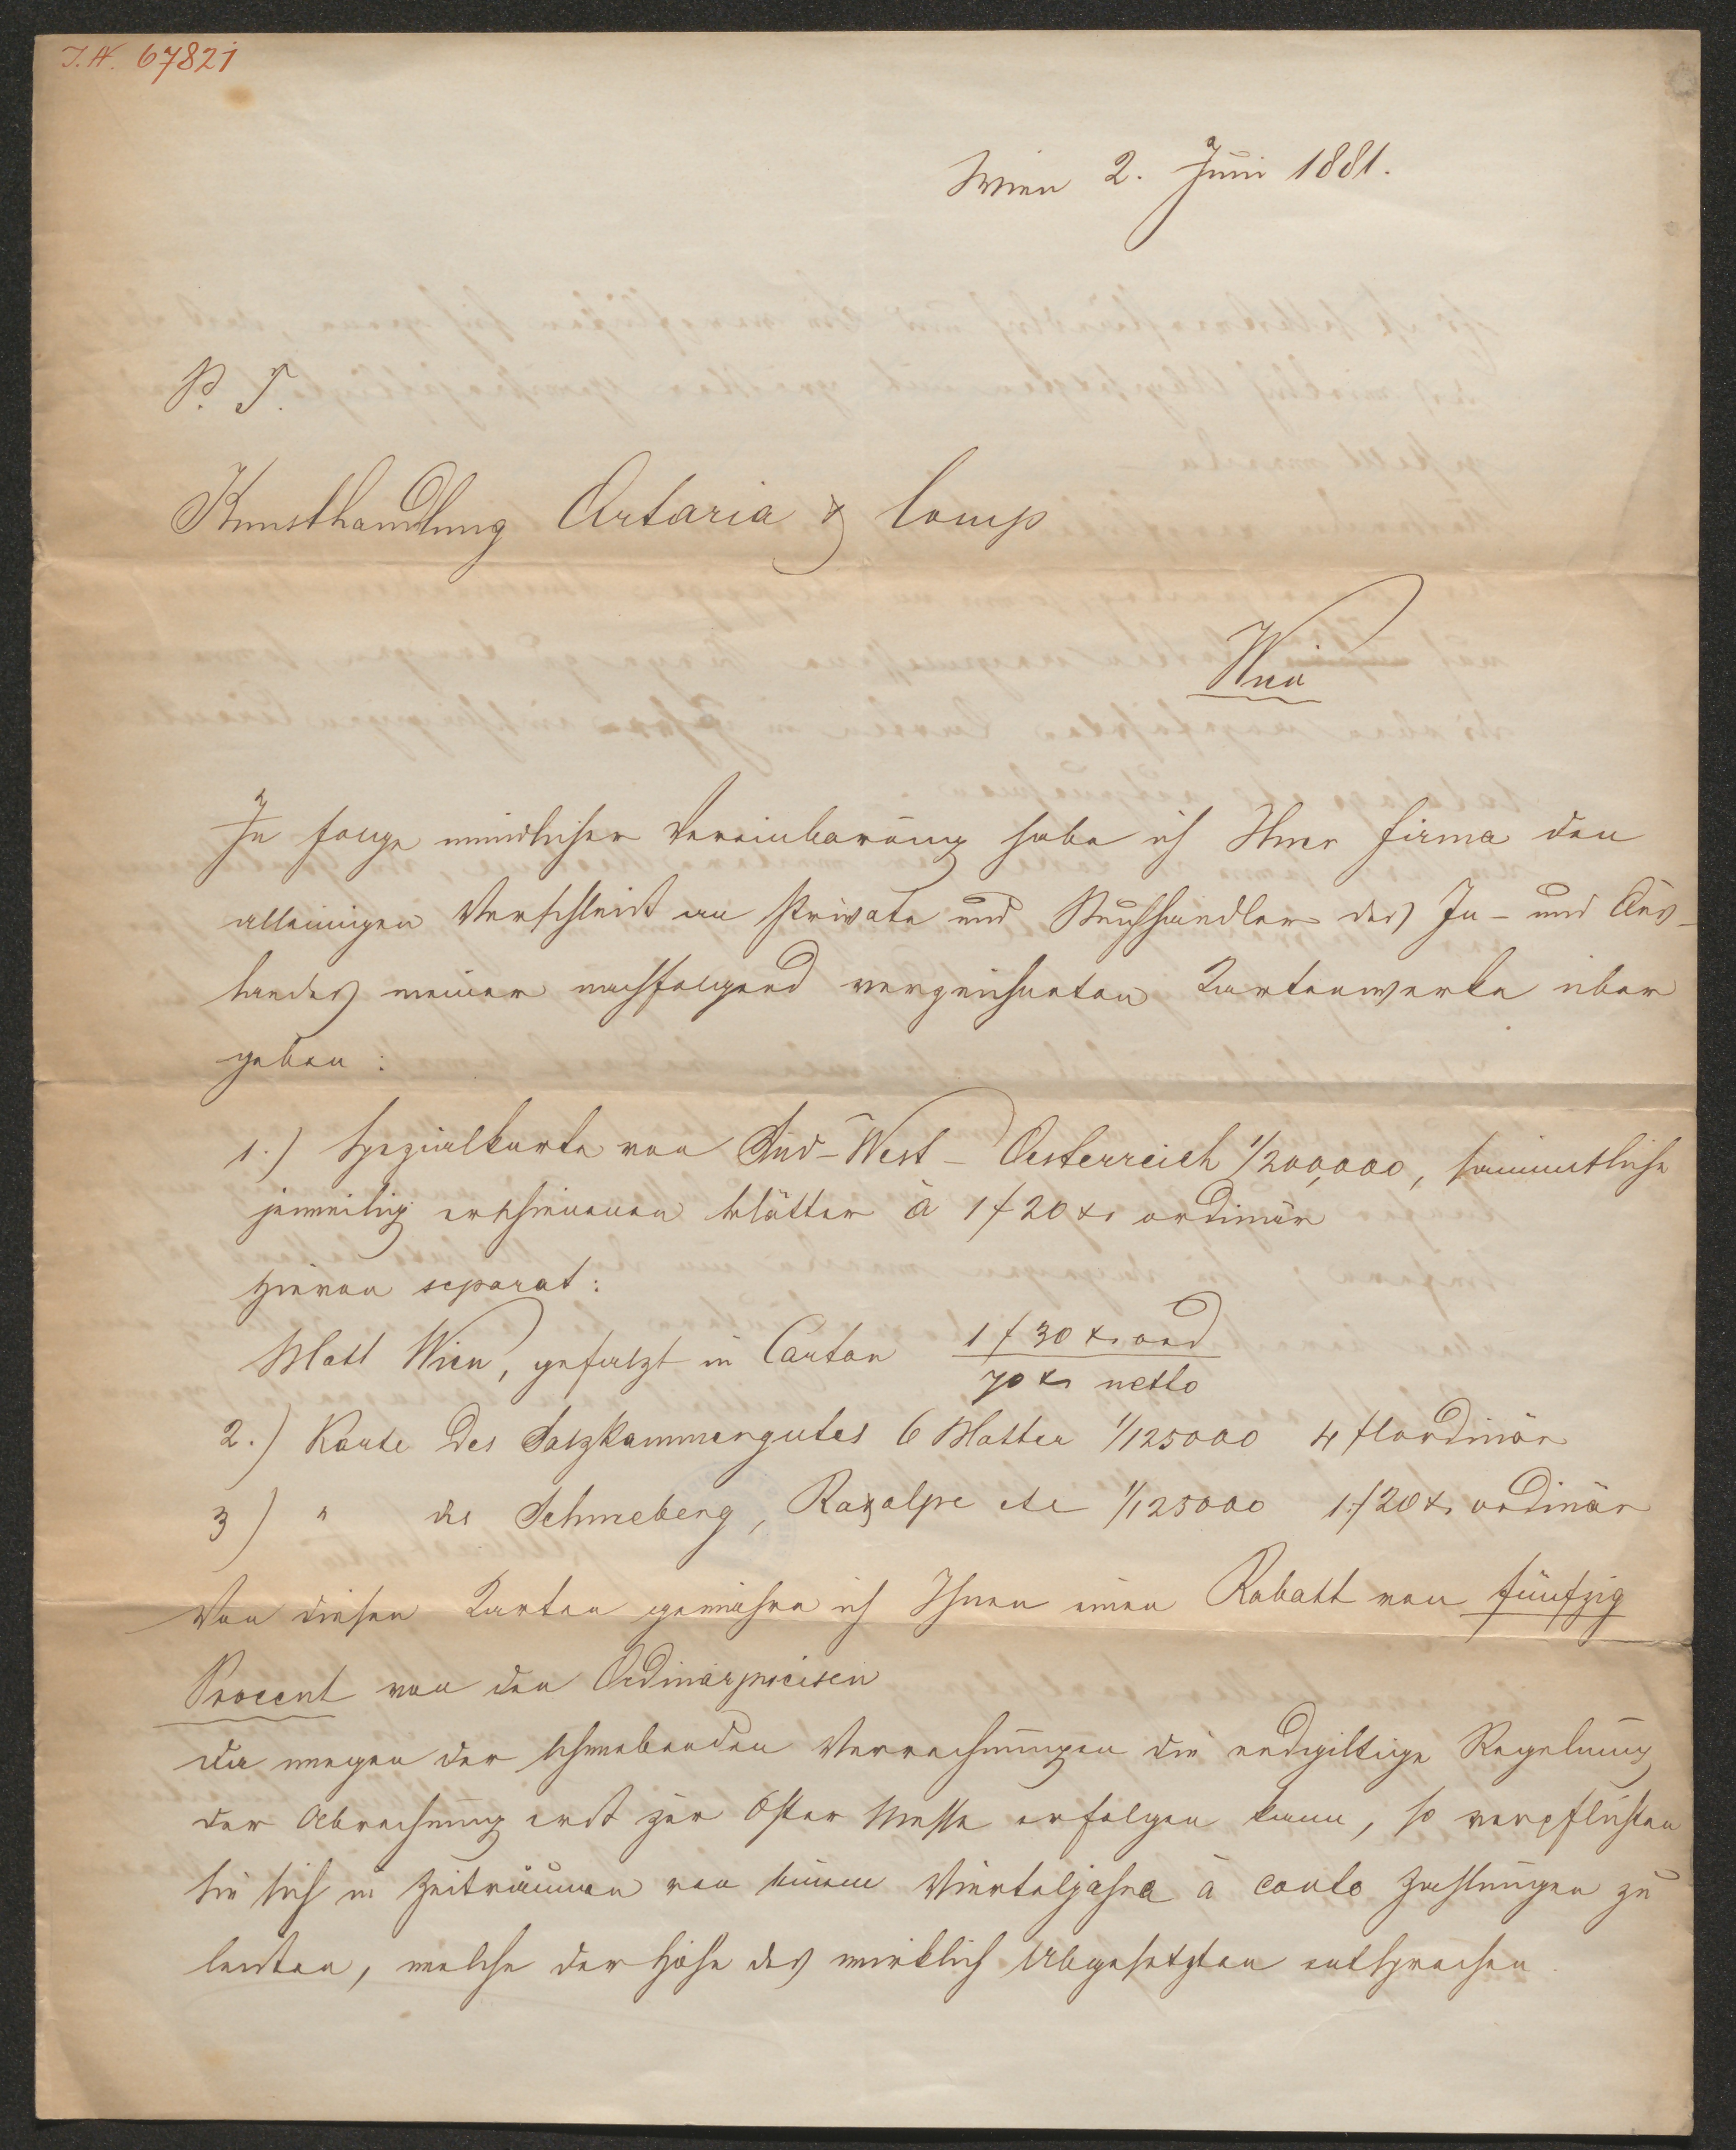 J.N. 67821
Wien 2. Juni 1881.
P. T.
Kunsthandlung Artaria & Comp
Wien
In Folge mündlicher Vereinbarung habe ich Ihrer Firma den
alleinigen Verschleiß an Private und Buchhändler des In- und Aus-
landes meiner nachfolgend verzeichneten Kartenwerke über
geben:
1.) Spezialkarte von Süd-West-Oesterreich 1/200,000, sämmtliche
jeweilig erschienenen Blätter à 1 f 20 xr ordinär
Hievon separat:
Blatt Wien, gefalzt in Carton 1 f 30 xr ord
70 xr netto
2.) Karte des Salzkammergutes 6 Blätter 1/125000 4 fl ordinär
3) " des Schneeberg, Raxalpe etc 1/125000 1 f 20 xr ordinär
Von diesen Karten gewähre ich Ihnen einen Rabatt von fünfzig
Procent von den Ordinärpreisen
Da wegen der schwebenden Verrechnungen die endgiltige Regelung
der Abrechnung erst zur Oster Messe erfolgen kann, so verpflichten
Sie sich in Zeiträumen von einem Vierteljahre à conto Zahlungen zu
leisten, welche der Höhe des wirklich Abgesetzten entsprechen.